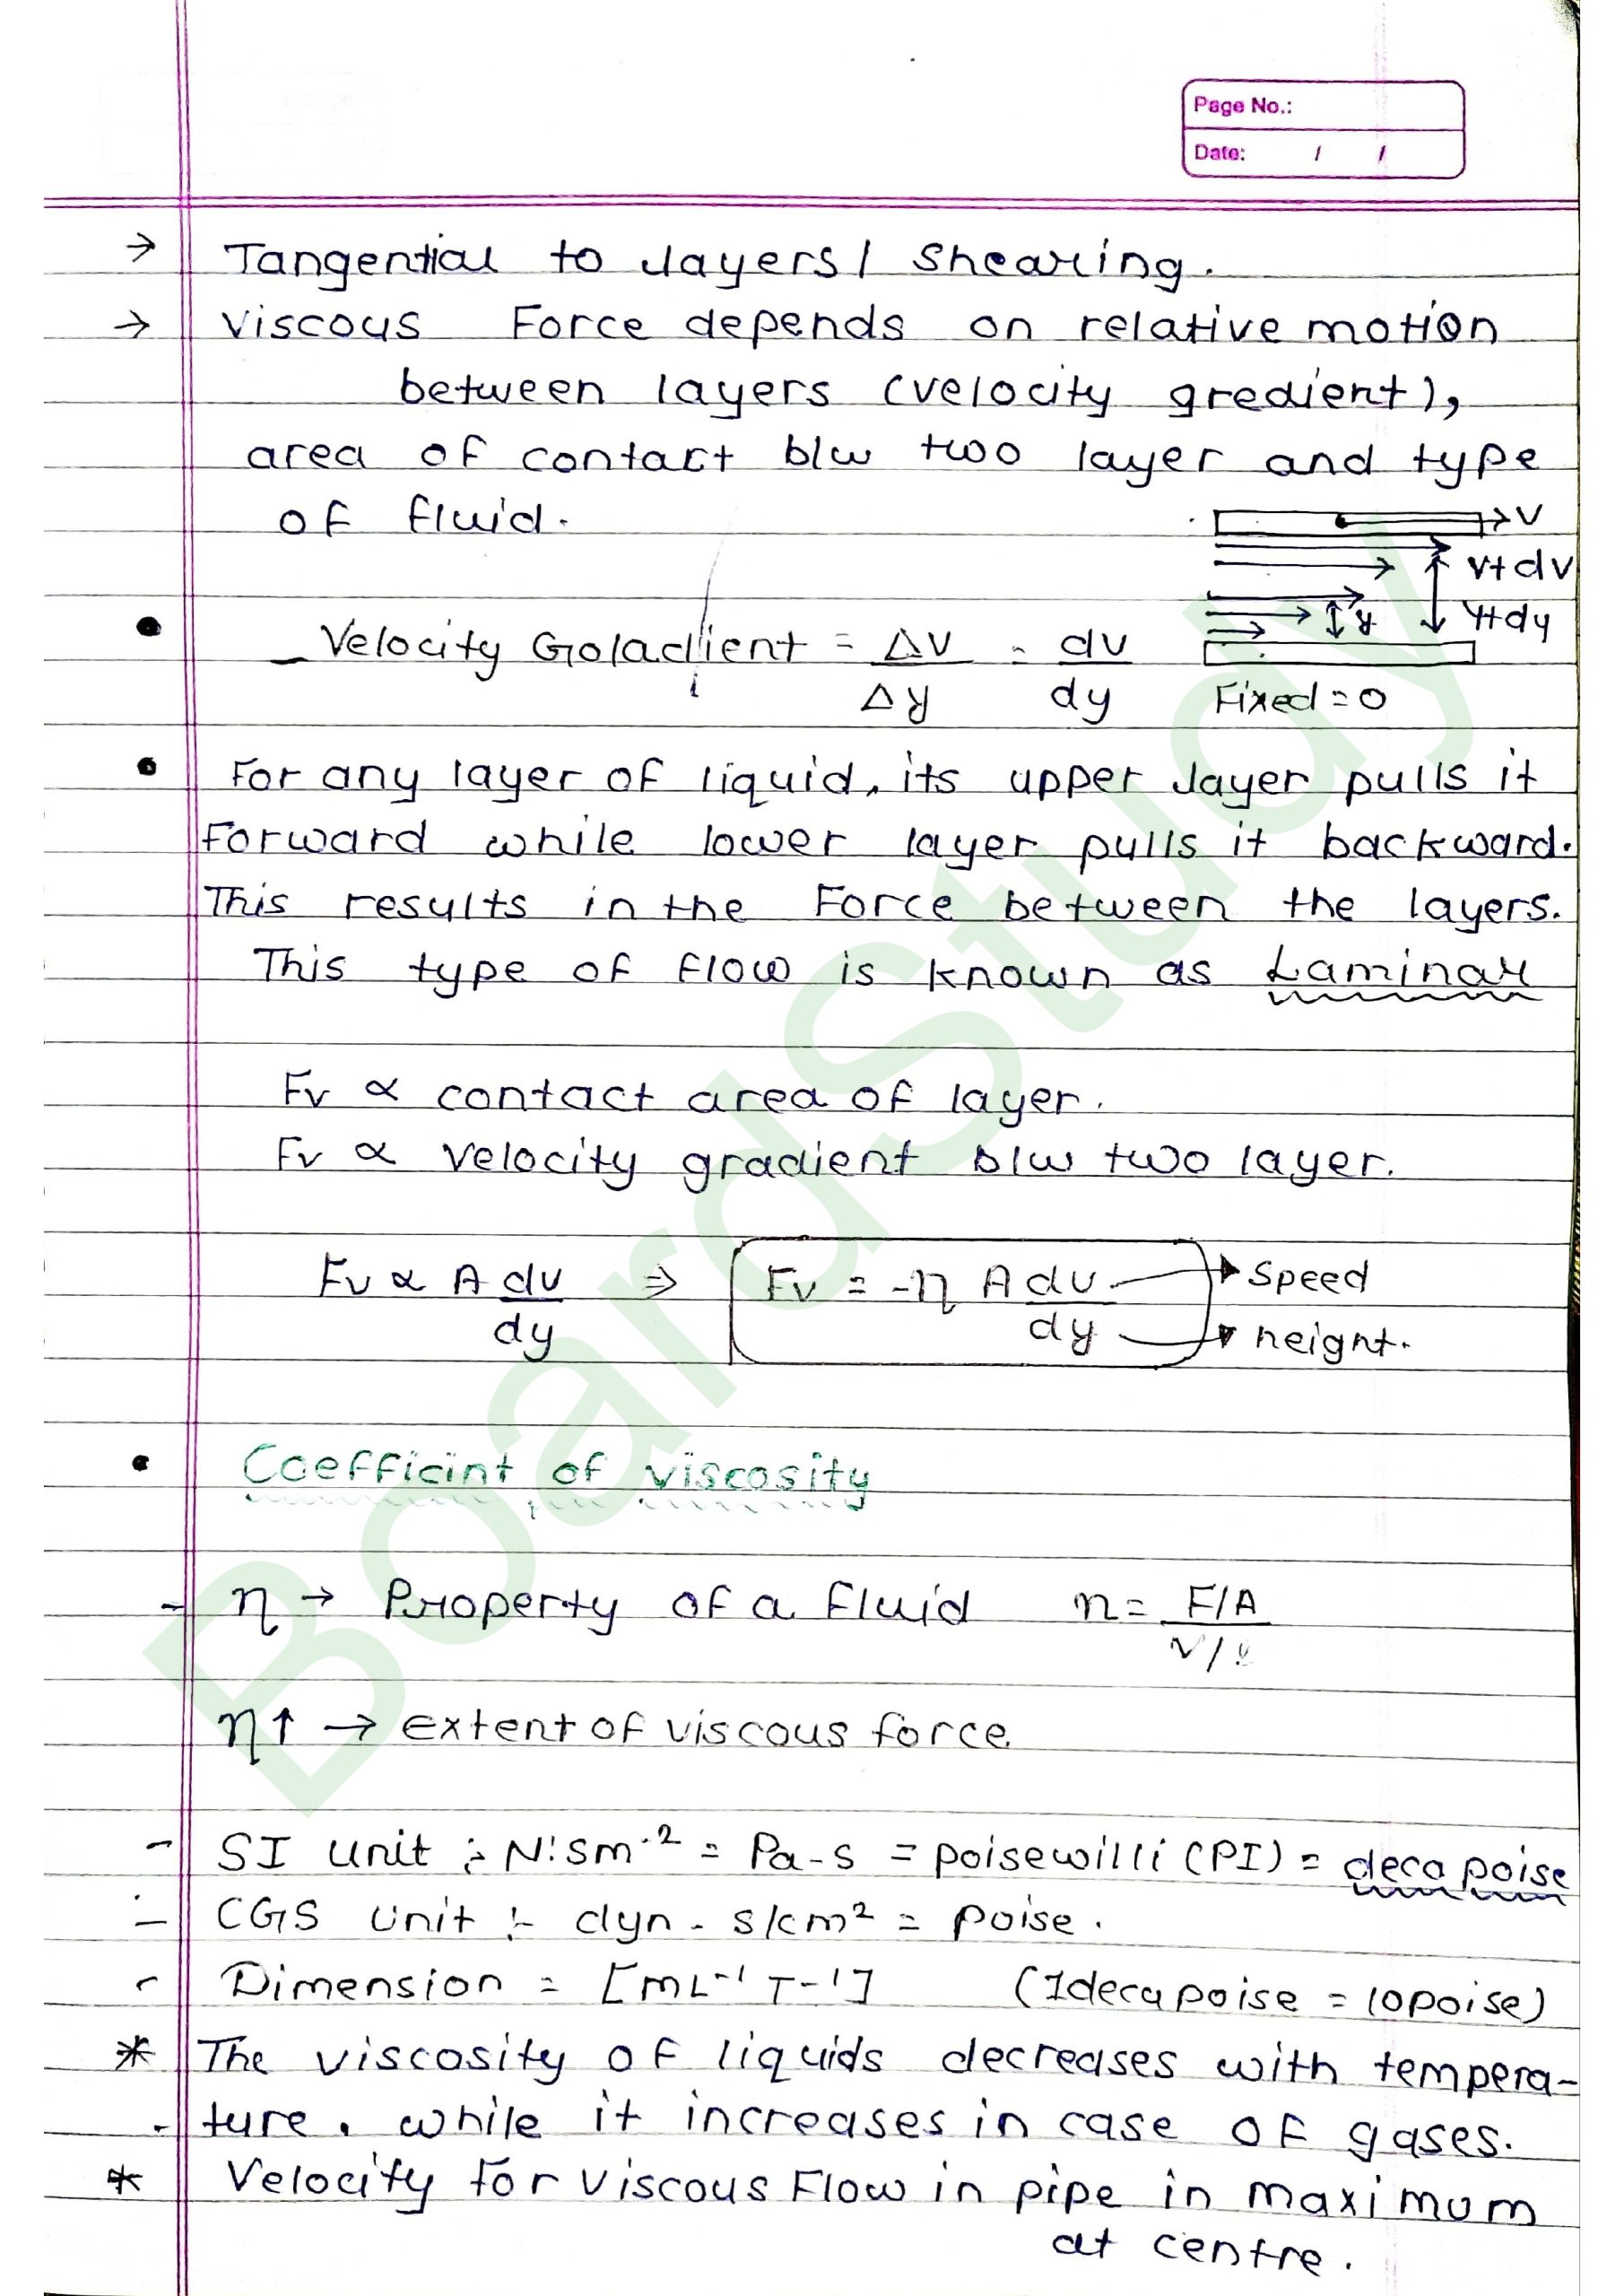 Page No.:
Date: / /
→ Tangential to layers/ Shearing.
→ Viscous Force depends on relative motion
between layers (velocity gredient),
area of contact b/w two layer and type
of fluid.
→V
V+dv
y
y+dy
Fixed = 0
• Velocity Goladient = ΔV/Δy = dv/dy
• For any layer of liquid, its upper layer pulls it
forward while lower layer pulls it backward.
This results in the Force between the layers.
This type of flow is known as Laminar
Fv ∝ contact area of layer.
Fv ∝ velocity gradient b/w two layer.
Fv ∝ A dv/dy ⇒ Fv = -η A dv/dy → Speed
→ height.
• Coefficint of viscosity
- η → Property of a fluid η = F/A
η↑ → Extent of viscous force
- SI Unit :- N·Sm⁻² = Pa-s = poisewilli (PI) = deca poise
- CGS Unit :- dyn - s/cm² = poise.
- Dimension = [ML⁻¹ T⁻¹] (1decapoise = 10poise)
* The viscosity of liquids decreases with tempera-
ture, while it increases in case of gases.
* Velocity for viscous Flow in pipe in maximum
at centre.
BoardStudy